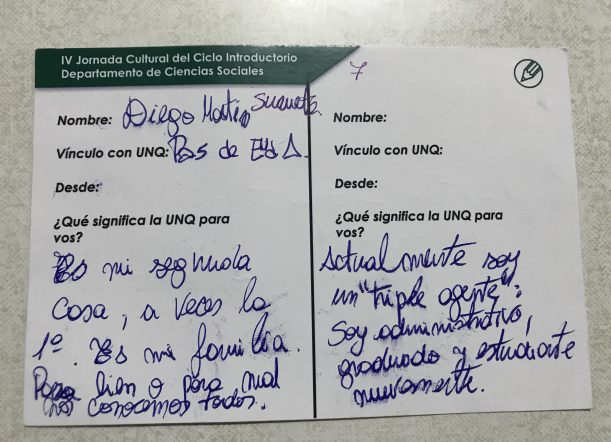 IV Jornada Cultural del Ciclo Introductorio
Departamento de Ciencias Sociales
Nombre: Diego Martín
Vínculo con UNQ: de
Desde:
¿Qué significa la UNQ para
vos?
Es mi segunda
casa, a veces la
1º. Es mi familia.
Para bien o para mal
nos conocemos todos.
7
Nombre:
Vínculo con UNQ:
Desde:
¿Qué significa la UNQ para
vos?
Actualmente soy
un "triple agente":
Soy administrativo,
graduado y estudiante
nuevamente.